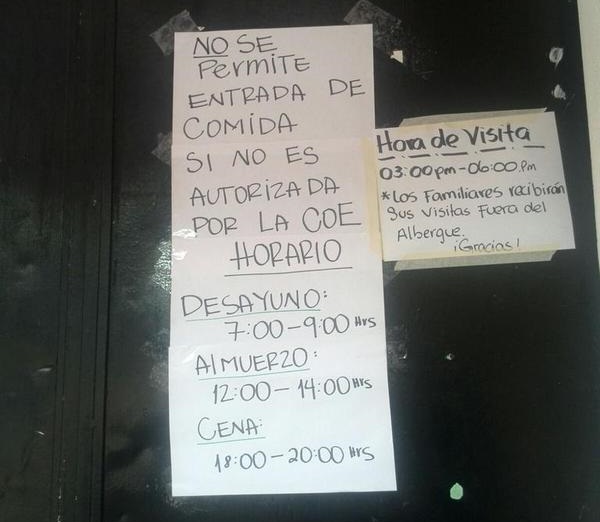 NO SE
PERMITE
ENTRADA DE
COMIDA
SI NO ES
AUTORIZADA
POR LA COE
HORARIO
DESAYUNO:
7:00-9:00 Hrs
AlMUERZO:
12:00-14:00 Hrs
CENA:
18:00-20:00 Hrs
Hora de Visita
03:00pm-06:00.Pm
*Los Familiares recibirán
Sus Visitas Fuera del
Albergue.
¡Gracias!